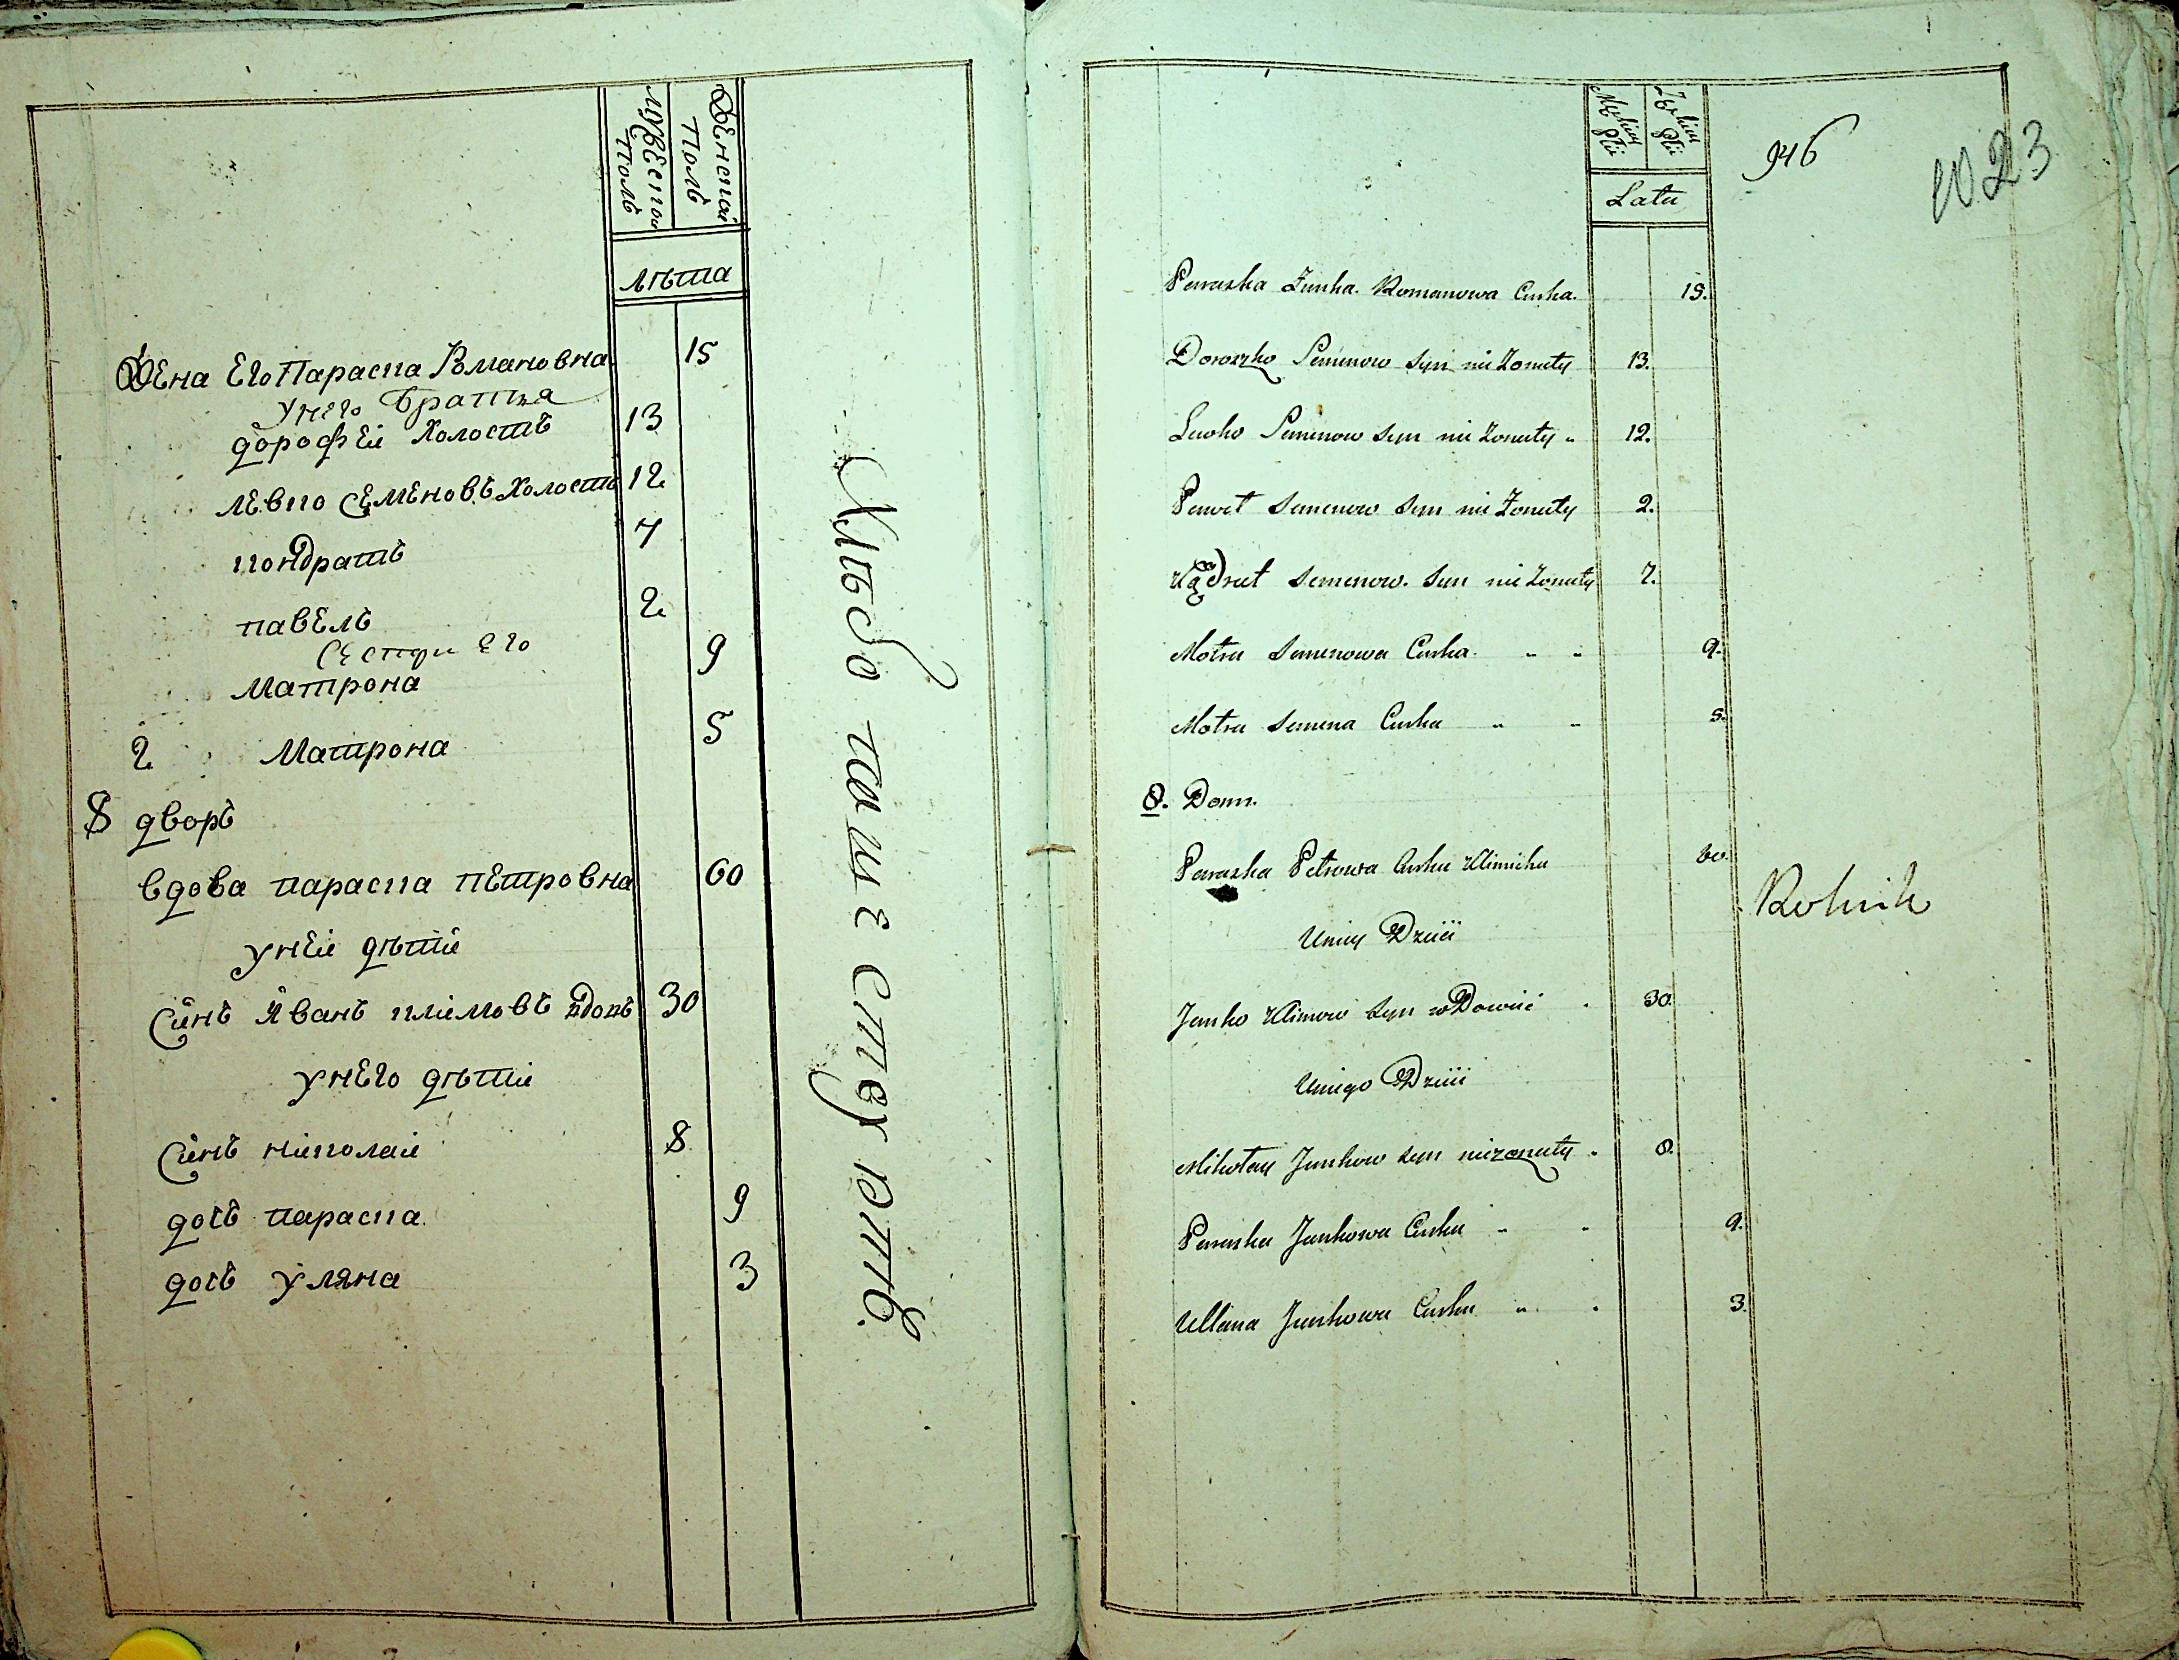 Мужеской Полъ
Женской Полъ
лѣта
Жена Его Параска Романовна 15
У него братья
дорофей Холостъ 13
левко Семеновъ Холостъ 12
кондратъ 7
павелъ 2
Сестри Его
Матрона 9
2 Матрона 5
8 дворъ
вдова параска петровна 60
у неи дѣти
Синъ Иванъ климовъ вдовъ 30
у него дѣти
Синъ николаи 8
дочь параска 9
дочь уляна 3
Męskiey Płci
Żeńskiey Płci
Lata
946
1023
Paraska Żonka Romanowa Curka 15.
Doroszko Semenow Syn nie Żonaty 13.
Lewko Semenow Syn nie Żonaty 12.
Paweł Semenow Syn nie Żonaty 2.
Kądrat Semenow Syn nie Żonaty 7.
Motra Semenowa Curka 9.
Motra Semena Curka 5.
8. Dom.
Paraska Petrowa Curka Klimicha 60.
Uniey Dzieci
Rolnik
Janko Klimow Syn wDowiec 30.
Uniego Dzieci
Mikołay Jankow Syn nieżonaty 8.
Paraska Jankowa Curka 9.
Ullana Jankowa Curka 3.